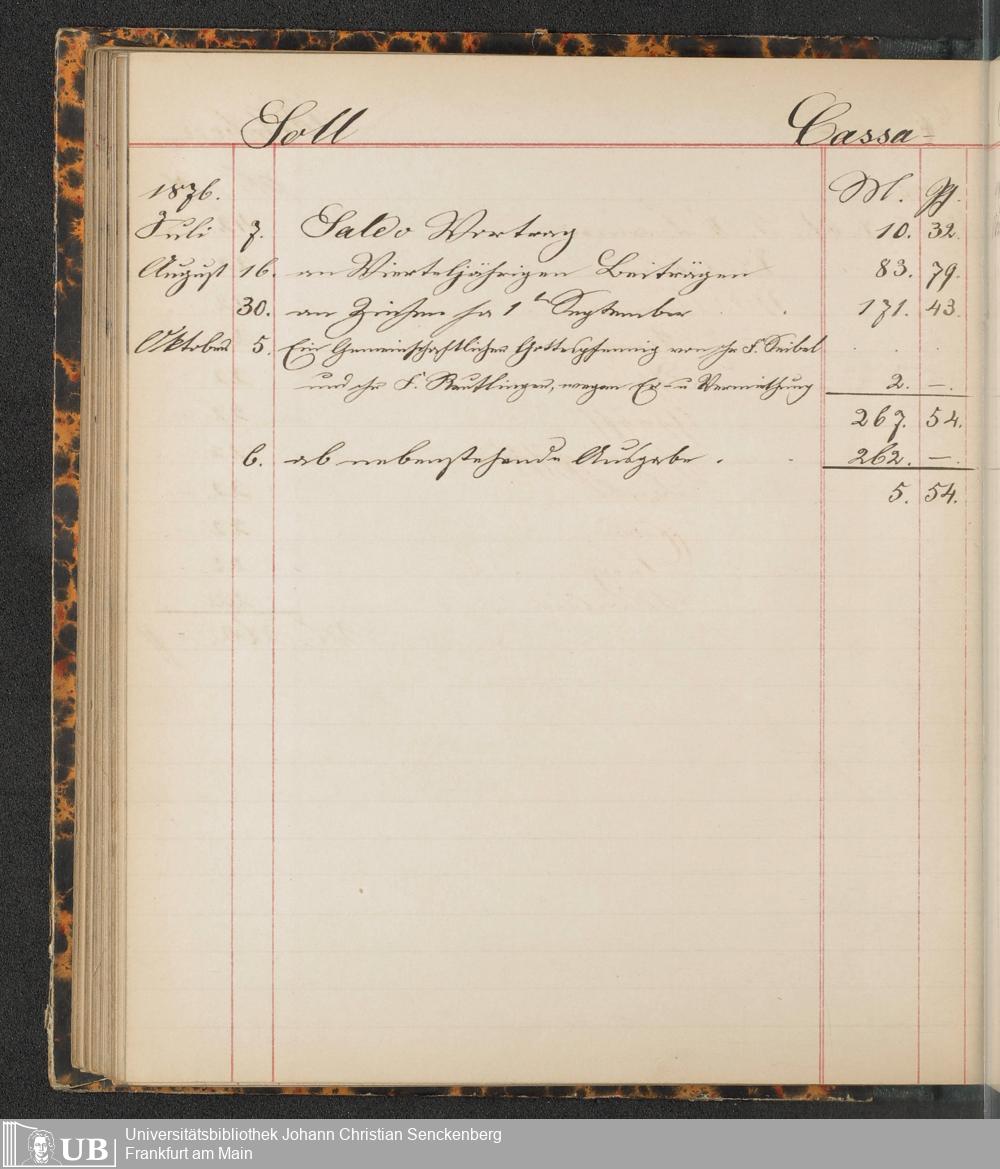 Soll Cassa-
1876. M. Pf.
Juli 7. Saldo Vortrag 10. 32.
August 16. an Vierteljährigen Beiträgen 83. 79.
30. an Zinsen pa 1ten September 171. 43.
Oktober 5. Ein Gemeinschaftlicher Gottespfennig von Hr F. Seibel
und Hr F. Reutlinger, wegen Er- u Vermiethung 2. —.
267. 54.
6. ab nebenstehende Ausgabe. 262. —.
5. 54.
UB Universitätsbibliothek Johann Christian Senckenberg
Frankfurt am Main